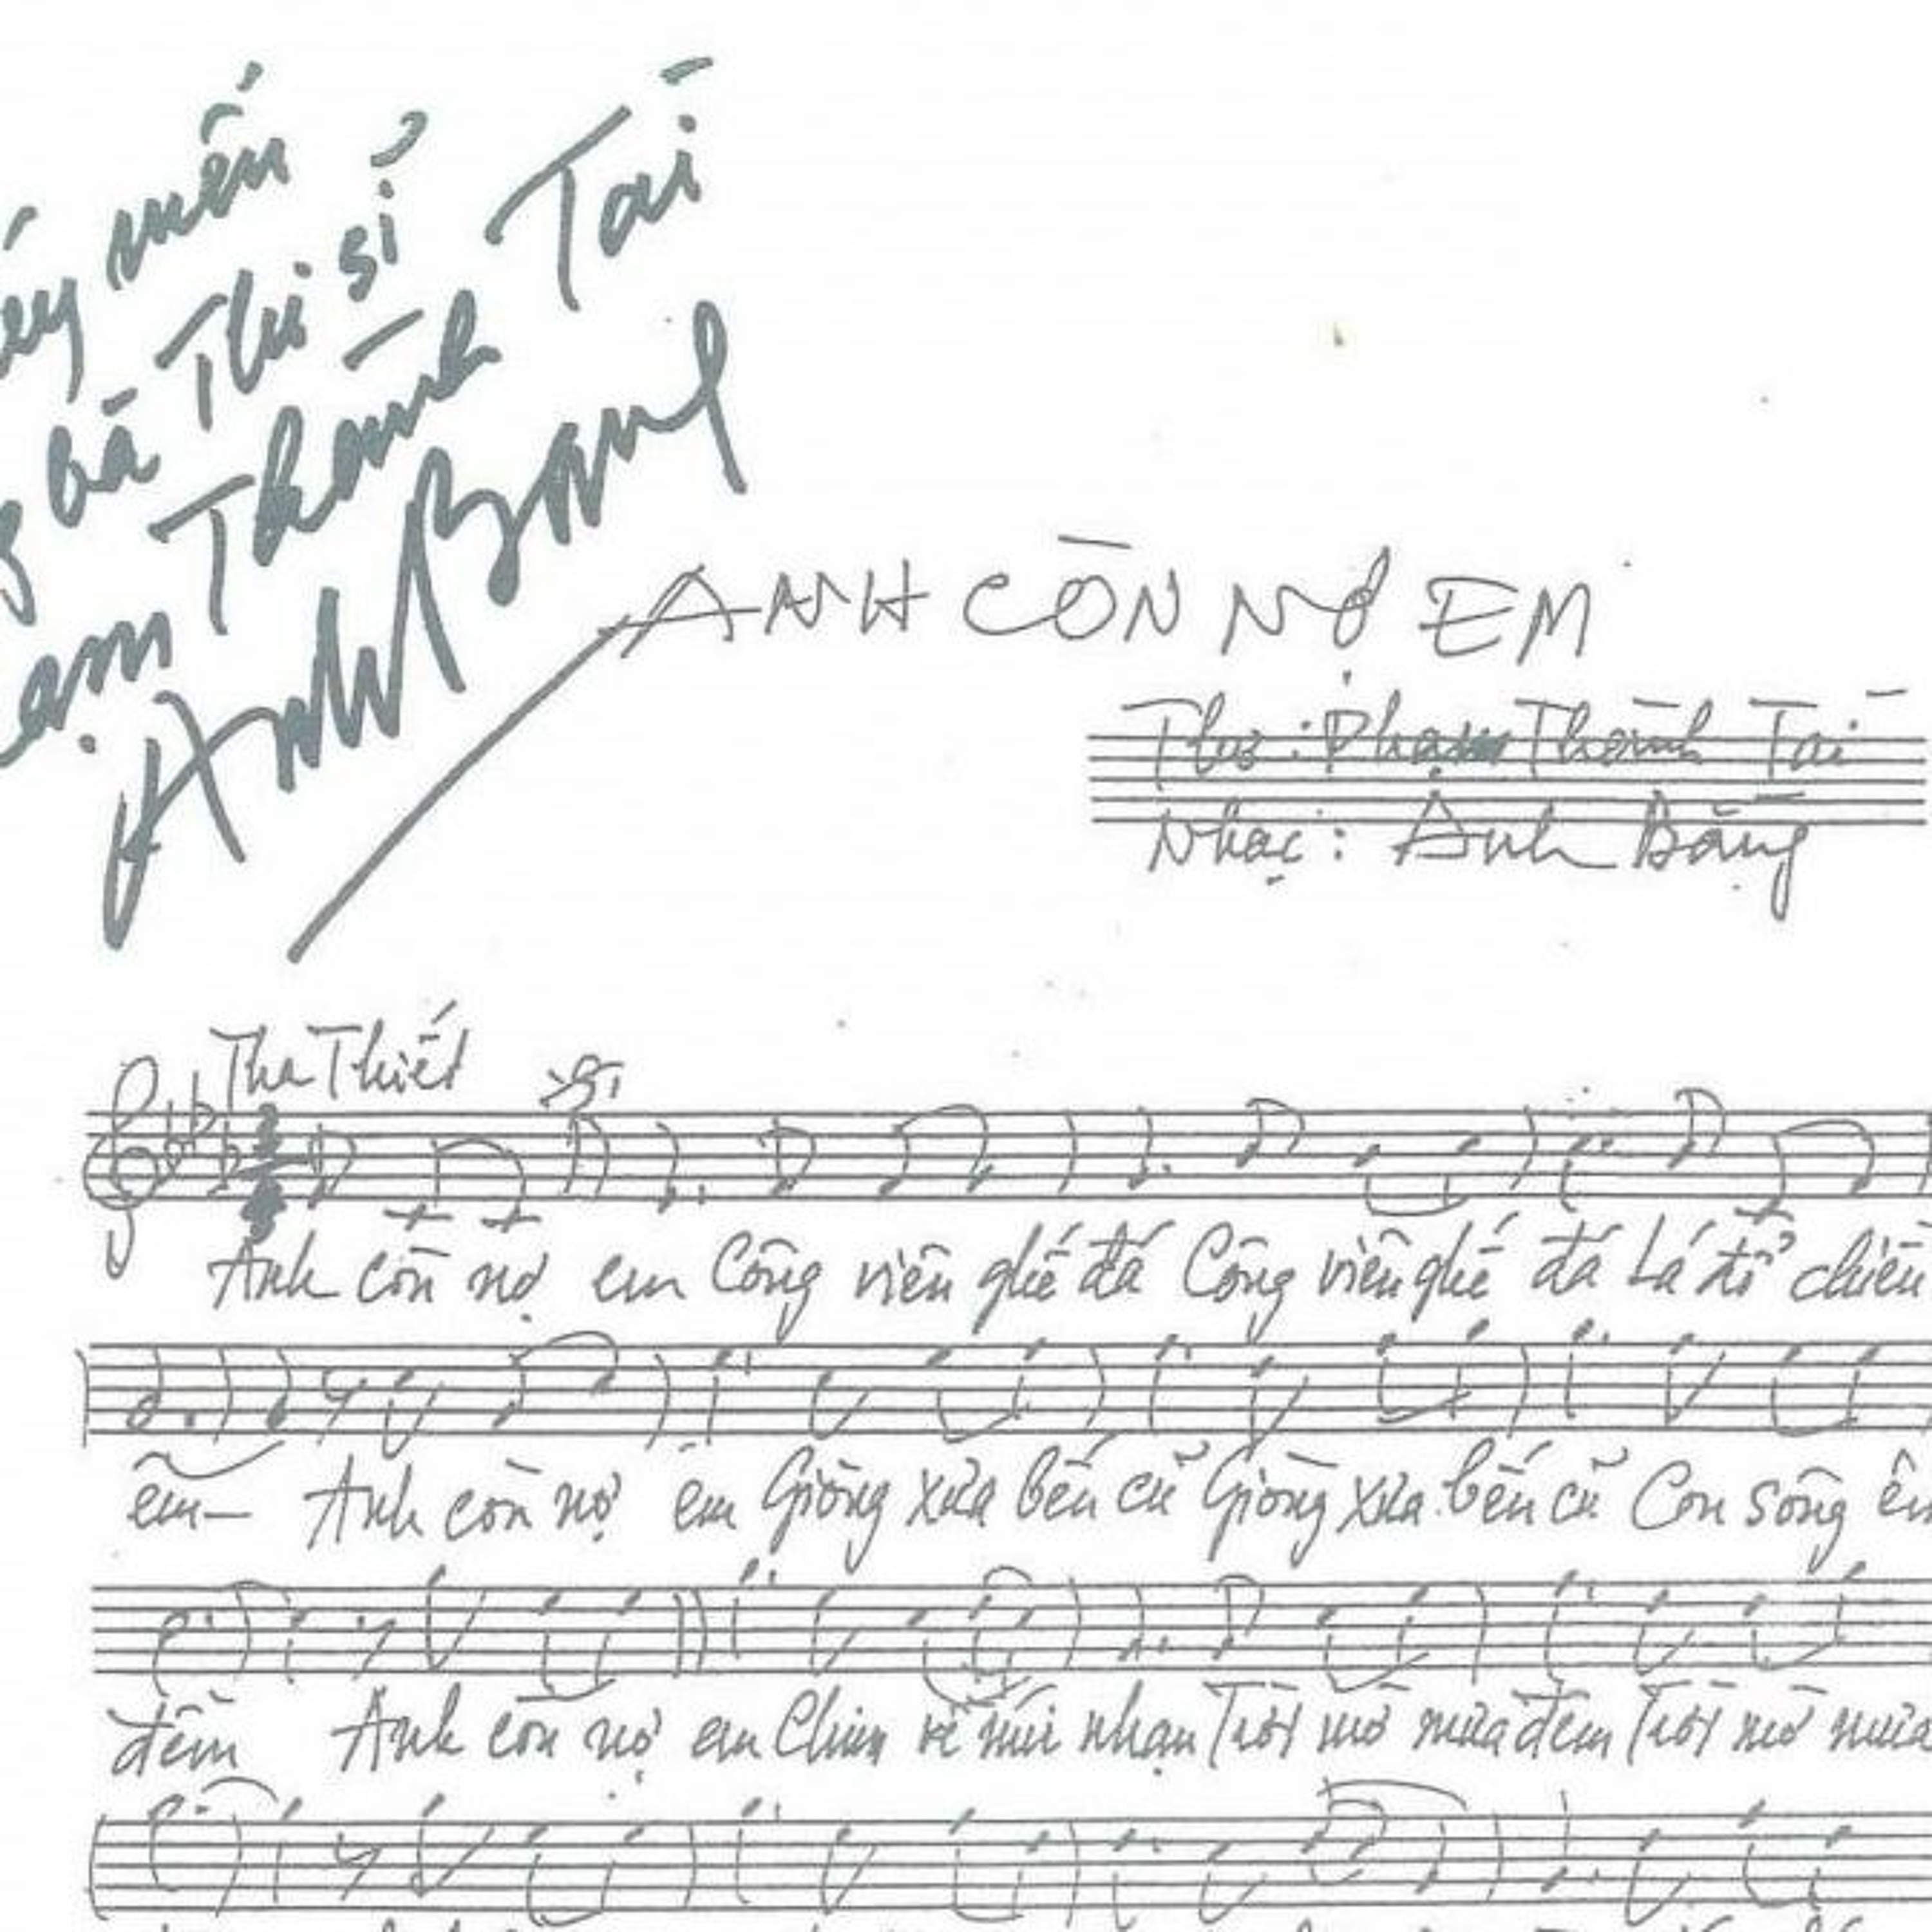 mến
bà Thi sĩ
Thành Tài
Anh Bằng
ANH CÒN NỢ EM
Thơ: Phạm Thành Tài
Nhạc: Anh Bằng
Tha Thiết
Anh còn nợ em Công viên ghế đá Công viên ghế đá Lá đổ chiều
em- Anh còn nợ em Giòng xưa bến cũ Giòng xưa bến cũ Con sông êm
đềm Anh còn nợ em Chim về núi nhạn Trời mờ mưa đêm Trời mờ mưa